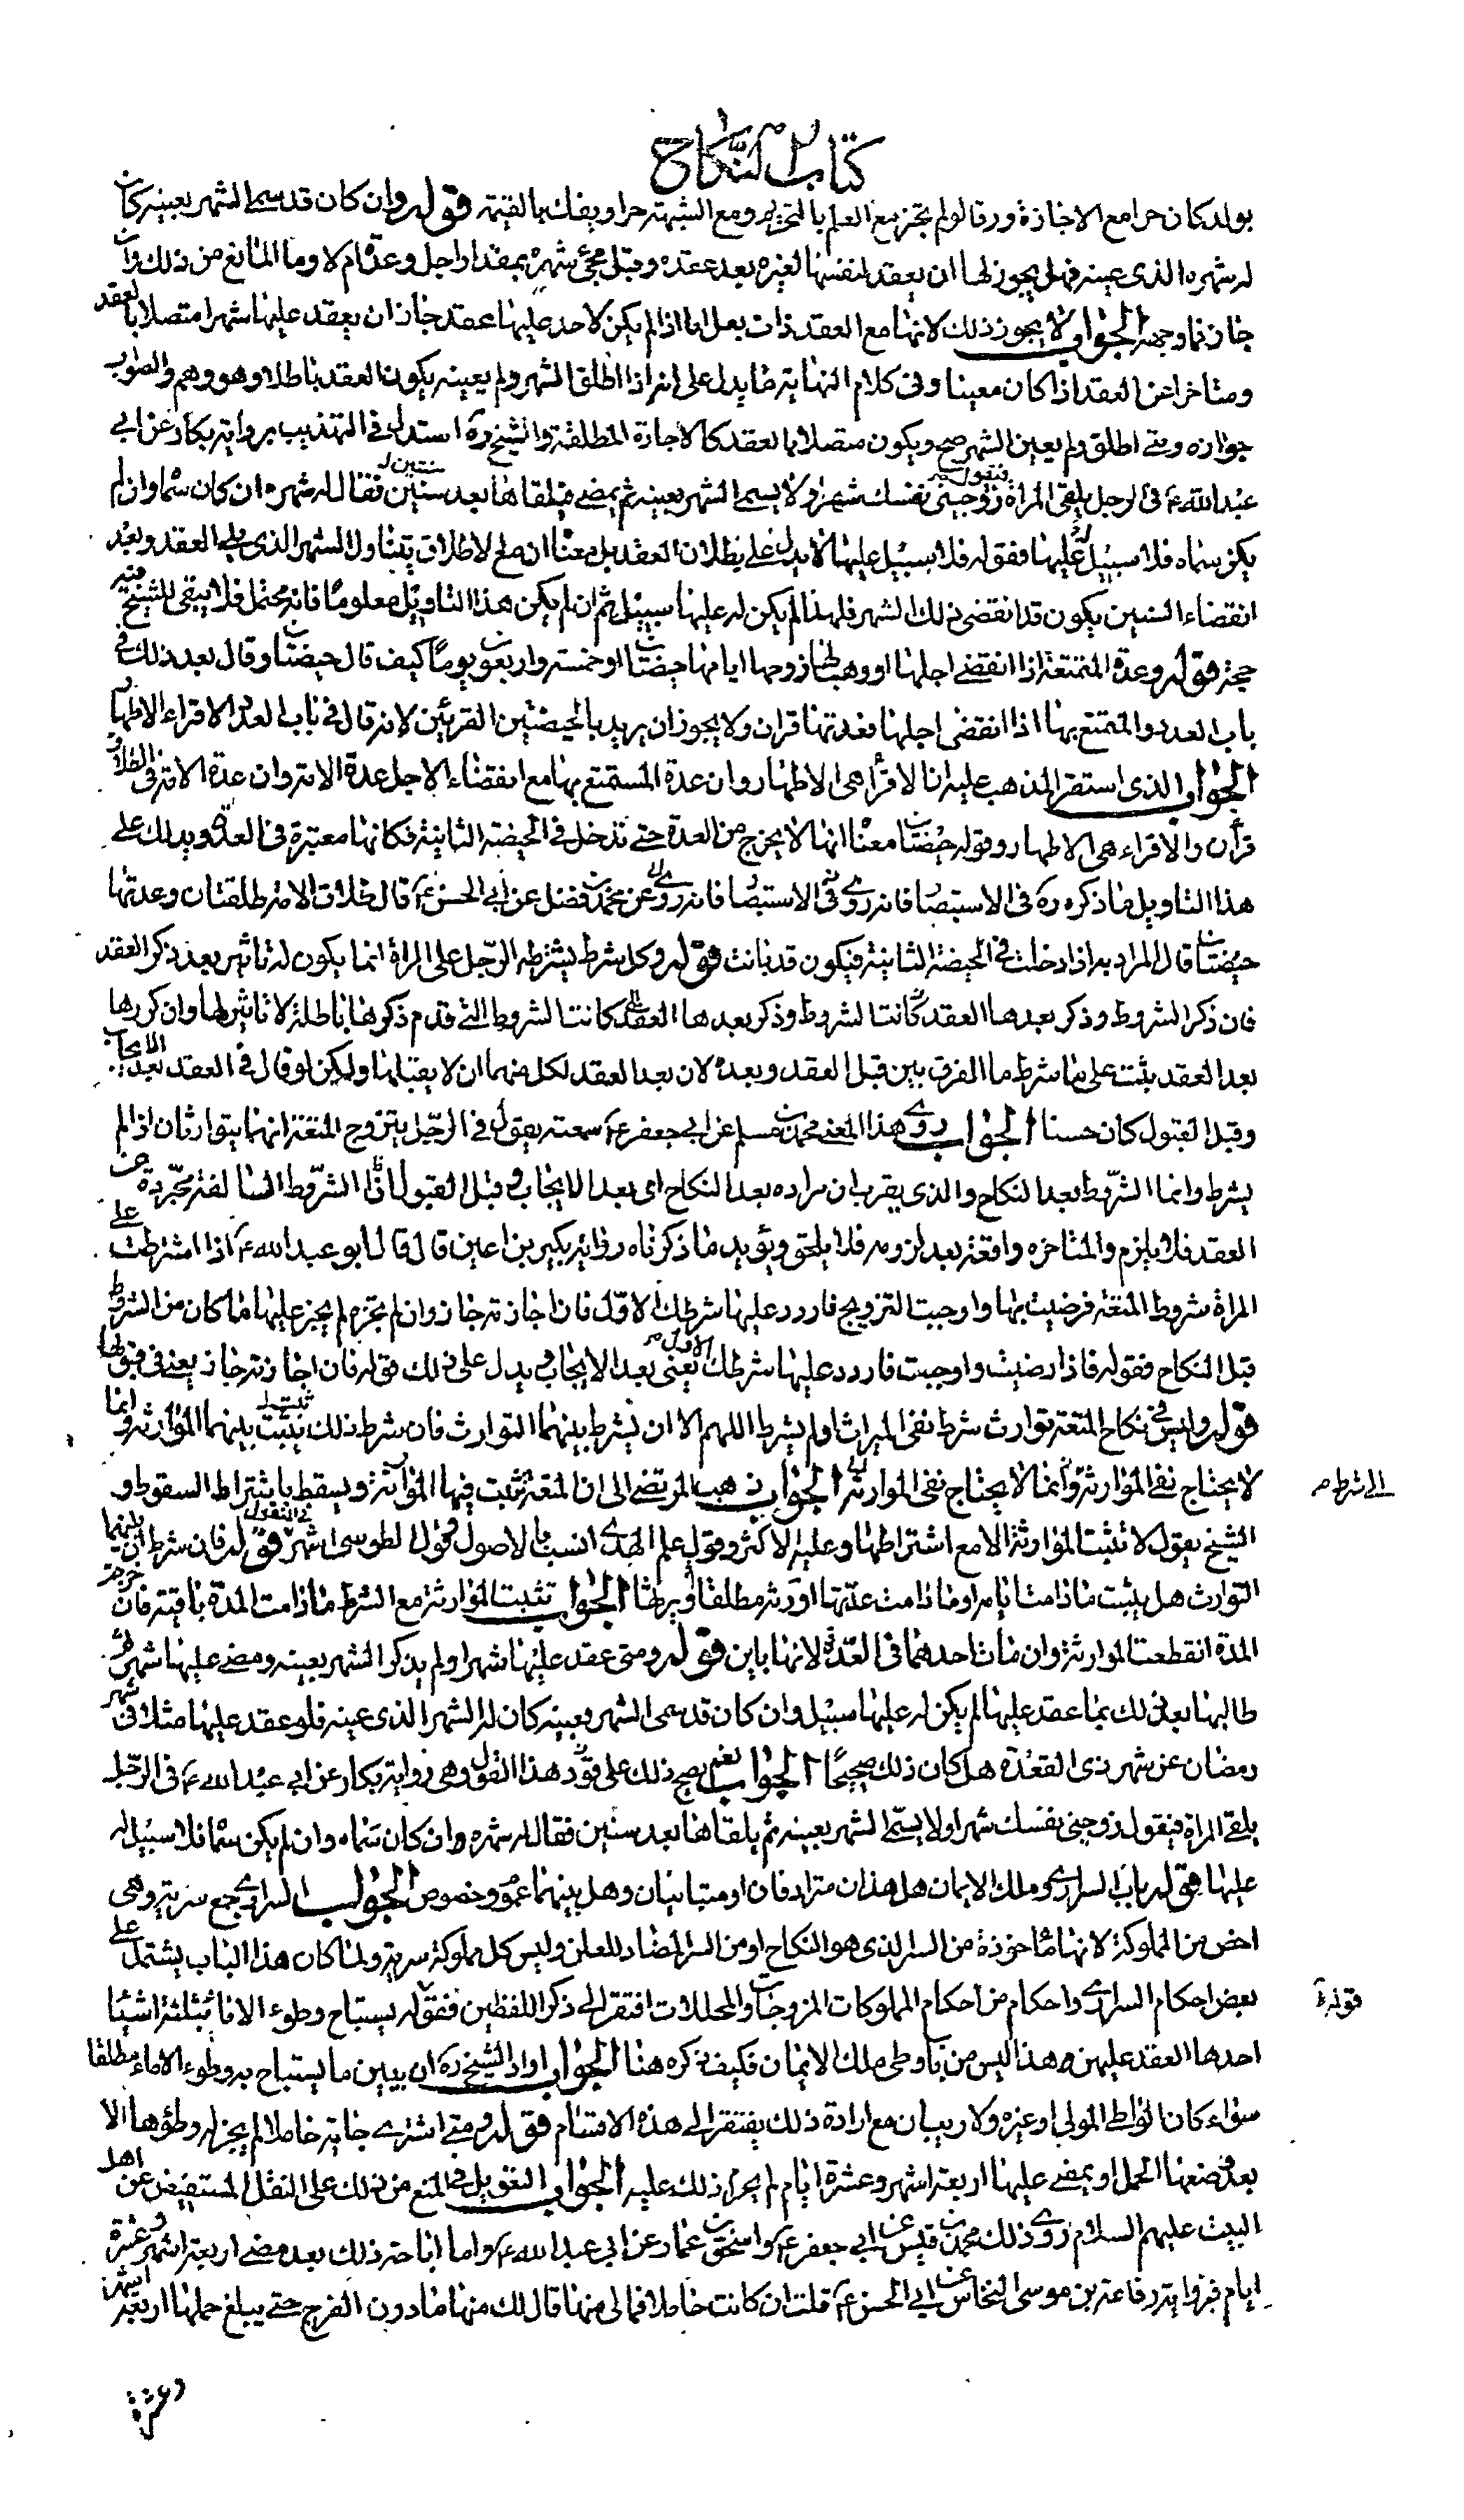 كتاب النكاح
بولد كان حرا مع الاجازة ورقا لو لم تجز مع العلم بالتحريم ومع الشبهة حرا ويفك بالقيمة قوله وان كان قد سمى الشهر بعينه كان
له شهره الذى عينه فهل يجوز لها ان يعقد لنفسها لغيره بعد عقده وقبل مجئ شهره بمقدار اجل وعدة ام لا وما المانع من ذلك وان
جاز فما وجهه الجواب لا يجوز ذلك لانها مع العقد ذات بعل اما اذا لم يكن لاحد عليها عقد جاز ان يعقد عليها شهرا متصلا بالعقد
ومتاخرا عن العقد اذا كان معينا وفى كلام النهاية ما يدل على انه اذا اطلق الشهر ولم يعينه يكون العقد باطلا وهو وهم والصواب
جوازه ومتى اطلق ولم يعين الشهر صح ويكون متصلا بالعقد كالاجارة المطلقة والشيخ ره استدل فى التهذيب برواية بكار عن ابى
عبد الله ع فى الرجل يلقى المراة فيقول زوجينى نفسك شهرا ولا يسمى الشهر بعينه ثم يمضى فيلقاها بعد سنين فقال له شهره ان كان سماه وان لم
يكن سماه فلا سبيل له عليها فقوله فلا سبيل عليها لا يدل على بطلان العقد بل معناه ان مع الاطلاق يتناول الشهر الذى يلى العقد وبعد
انقضاء السنين يكون قد انقضى ذلك الشهر فلهذا لم يكن له عليها سبيل ثم ان لم يكن هذا التاويل معلوما فانه محتمل فلا يبقى للشيخ فيه
حجة قوله وعدة المتمتعة اذا انقضى اجلها او وهب لها زوجها ايامها حيضتان او خمسة واربعون يوما كيف قال حيضتان وقال بعد ذلك فى
باب العدد والمتمتع بها اذا انقضى اجلها فعدتها قرآن ولا يجوز ان يريد بالحيضتين القرئين لانه قال فى باب العدد الاقراء الاطهار
الجواب الذى استقر المذهب عليه ان الاقراء هى الاطهار وان عدة المستمتع بها مع انقضاء الاجل عدة الامة وان عدة الامة فى الطلاق
قرآن والاقراء هى الاطهار وقوله حيضتان معناه انها لا يخرج من العدة حتى تدخل فى الحيضة الثانية فكانها معتبرة فى العدة ويدلك على
هذا التاويل ما ذكره ره فى الاستبصار فانه روى فى الاستبصار فانه روى عن محمد بن فضل عن ابى الحسن ع قال طلاق الامة طلقتان وعدتها
حيضتان قال المراد به اذا دخلت فى الحيضة الثانية فيكون قد بانت قوله وكل شرط يشترطه الرجل على المراة انما يكون له تاثير بعد ذكر العقد
فان ذكر الشروط وذكر بعدها العقد كانت الشروط وذكر بعدها العقد كانت الشروط التى قدم ذكرها باطلة لا تاثير لها وان كررها
بعد العقد يثبت على ما شرط ما الفرق بين قبل العقد وبعده لان بعد العقد لكل منهما ان لا يقبلها ولكن لو قال فى العقد بعد الايجاب
وقبل القبول كان حسنا الجواب روى هذا المعنى محمد بن مسلم عن ابى جعفر ع سمعته يقول فى الرجل يتزوج المتعة انهما يتوارثان اذا لم
يشرط وانما الشرط بعد النكاح والذى يقرب ان مراده بعد النكاح اى بعد الايجاب وقبل القبول اذ الشروط السالفة مجردة عن
العقد فلا يلزم والمتاخرة واقعة بعد لزومه فلا يلحق ويؤيد ما ذكرناه رواية بكير بن اعين قال قال ابو عبد الله ع اذا اشترطت على
المراة شروط المتعة فرضيت بها واوجبت التزويج فاردد عليها شرطك الاول فان اجازته جاز وان لم تجزه لم يجز عليها ما كان من الشرط
قبل النكاح فقوله فاذا رضيت واوجبت فاردد عليها شرطك الاول يعنى بعد الايجاب يدل على ذلك قوله فان اجازته جاز يعنى فى قبولها
قوله وليس فى نكاح المتعة توارث شرط نفى الميراث او لم يشرط اللهم الا ان يشرط بينهما التوارث فان شرط ذلك ثبتت بينهما الموارثة وانما
لا يحتاج نفى الموارثة وانما لا يحتاج نفى الموارثة الجواب ذهب المرتضى الى ان المتعة تثبت فيها الموارثة ويسقط باشتراط السقوط و
الى شرط
الشيخ يقول لا تثبت الموارثة الا مع اشتراطها وعليه الاكثر وقول علم الهدى انسب بالاصول وقول الطوسى اشهر فى النقول قوله فان شرط بينهما
التوارث هل يثبت ما دامت بايامه او ما دامت عدتها او ترثه مطلقا ويرثها الجواب تثبت الموارثة مع الشرط ما دامت المدة باقية فان خرجت
المدة انقطعت الموارثة وان مات احدهما فى العدة لانها باين قوله ومتى عقد عليها شهرا ولم يذكر الشهر بعينه ومضى عليها شهر ثم
طالبها بعد ذلك بما عقد عليها لم يكن له عليها سبيل وان كان قد سمى الشهر بعينه كان له الشهر الذى عينه فلو عقد عليها مثلا فى شهر
رمضان عن شهر ذى القعدة هل كان ذلك صحيحا الجواب نعم يصح ذلك على قود هذا القول وهى رواية بكار عن ابى عبد الله ع فى الرجل
يلقى المراة فيقول زوجينى نفسك شهرا ولا يسمى الشهر بعينه ثم يلقاها بعد سنين فقال له شهره وان كان سماه وان لم يكن سماه فلا سبيل له
عليها قوله باب السرارى وملك الايمان هل هذان مترادفان او متباينان وهل بينهما عموم وخصوص الجواب السرارى جمع سرية وهى
اخص من المملوكة لانها ماخوذة من السر الذى هو النكاح او من السر المضاد للعلن وليس كل مملوكة سرية ولما كان هذا الباب يشتمل على
بعض احكام السرارى واحكام من احكام المملوكات المزوجات والمحللات افتقر الى ذكر اللفظين فقوله يستباح وطوء الاماء بثلثة اشياء
قوله
احدها العقد عليهن وهذا ليس من باب وطى ملك الايمان فكيف ذكره هنا الجواب اراد الشيخ ره ان يبين ما يستباح به وطوء الاماء مطلقا
سواء كان الواطى المولى او غيره ولا ريب ان مع ارادة ذلك يفتقر الى هذه الاقسام قوله ومتى اشترى جارية حاملا لم يجز له وطؤها الا
بعد وضعها الحمل او يمضى عليها اربعة اشهر وعشرة ايام لم يحرم ذلك عليه الجواب التعويل فى المنع من ذلك على النقل المستفيض عن اهل
البيت عليهم السلام روى ذلك محمد بن قيس عن ابى جعفر ع واسحق بن عمار عن ابى عبد الله ع واما اباحة ذلك بعد مضى اربعة اشهر وعشرة
ايام فبرواية رفاعة بن موسى النخاس عن ابى الحسن ع قلت ان كانت حاملا فما لى منها قال لك منها ما دون الفرج حتى يبلغ حملها اربعة اشهر